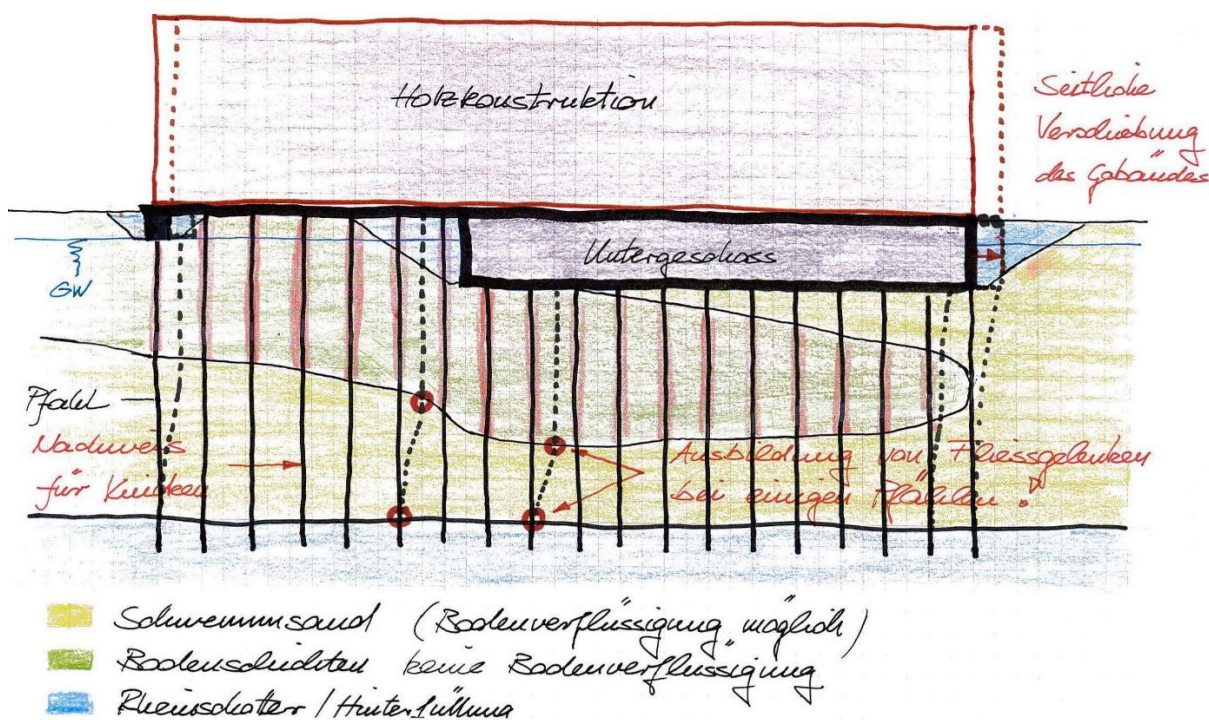 Holzkonstruktion
Seitliche
Verschiebung
des Gebäudes
Untergeschoss
GW
Pfahl
Nachweis
für Knicken
Ausbildung von Fliessgelenken
bei einigen Pfählen !
Schwemmsand (Bodenverflüssigung möglich)
Bodenschichten keine Bodenverflüssigung
Rheinschotter / Hinterfüllung